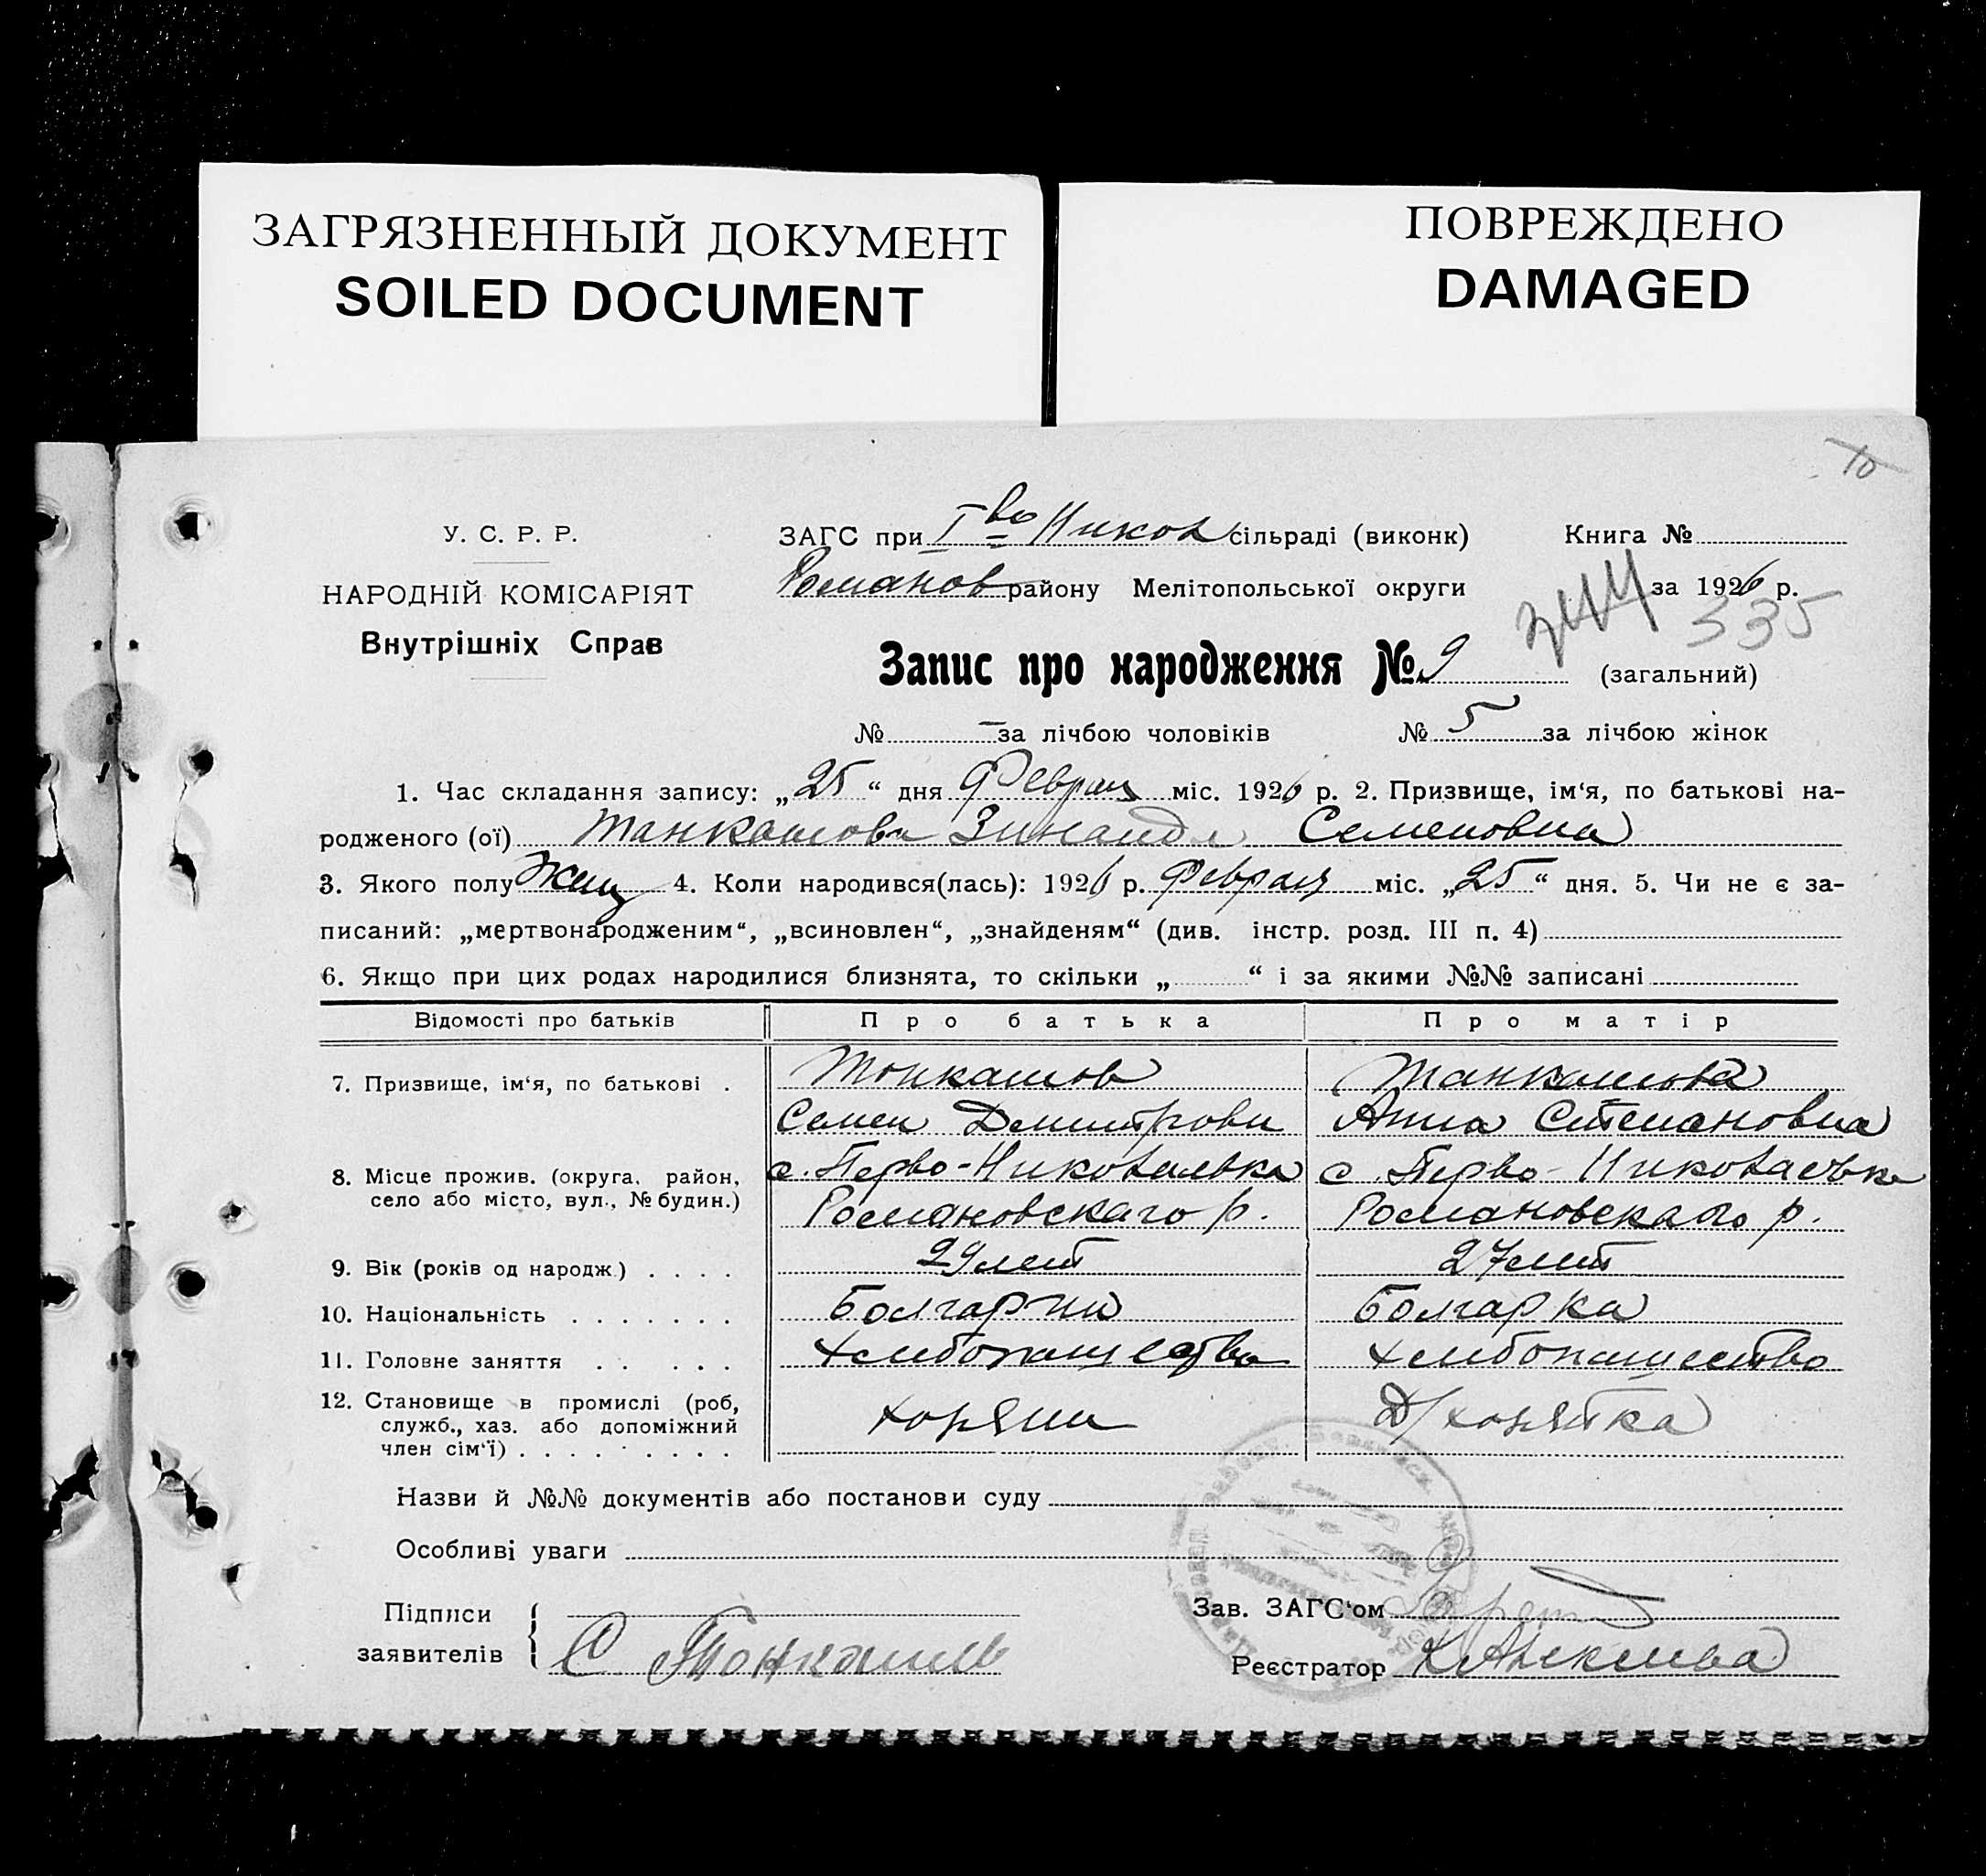 ЗАГРЯЗНЕННЫЙ ДОКУМЕНТ
SOILED DOCUMENT
ПОВРЕЖДЕНО
DAMAGED
10
У. С. Р. Р.
НАРОДНІЙ КОМІСАРІЯТ
Внутрішніх Справ
ЗАГС при Iво Никол сільраді (виконк) Книга №
Романов району Мелітопольської округи за 1926 р.
344 335
Запис про народження № 9 (загальний)
№ — за лічбою чоловіків № 5 за лічбою жінок
1. Час складання запису: „25“ дня Феврал міс. 1926 р. 2. Призвище, ім‘я, по батькові на-
родженого (ої) Танкашова Зинаида Семеновна
3. Якого полу Жен 4. Коли народився(лась): 1926 р. Февраля міс. „25“ дня. 5. Чи не є за-
писаний: „мертвонародженим“, „всиновлен“, „знайденям“ (див. інстр. розд. III п. 4)
6. Якщо при цих родах народилися близнята, то скільки „ “ і за якими №№ записані
Відомості про батьків Про батька Про матір
7. Призвище, ім‘я, по батькові . Тонкашов Танкашова
Семен Дмитрови Анна Степановна
8. Місце прожив. (округа, район, с. Перво-Николаевка с. Перво-Николаевка
село або місто, вул., № будин.) Романовскаго р. Романовскаго р.
9. Вік (років од народж.) . . . . 29 лет 27 лет
10. Національність . . . . . . . Болгарин Болгарка
11. Головне заняття . . . . . Хлебопашество Хлебопашество
12. Становище в промислі (роб,
служб., хаз. або допоміжний
член сім‘ї) . . . . . . . . . Хозяин Д/хозяйка
Назви й №№ документів або постанови суду
Особливі уваги
Підписи
заявителів С Тонкашов
Зав. ЗАГС‘ом
Реєстратор